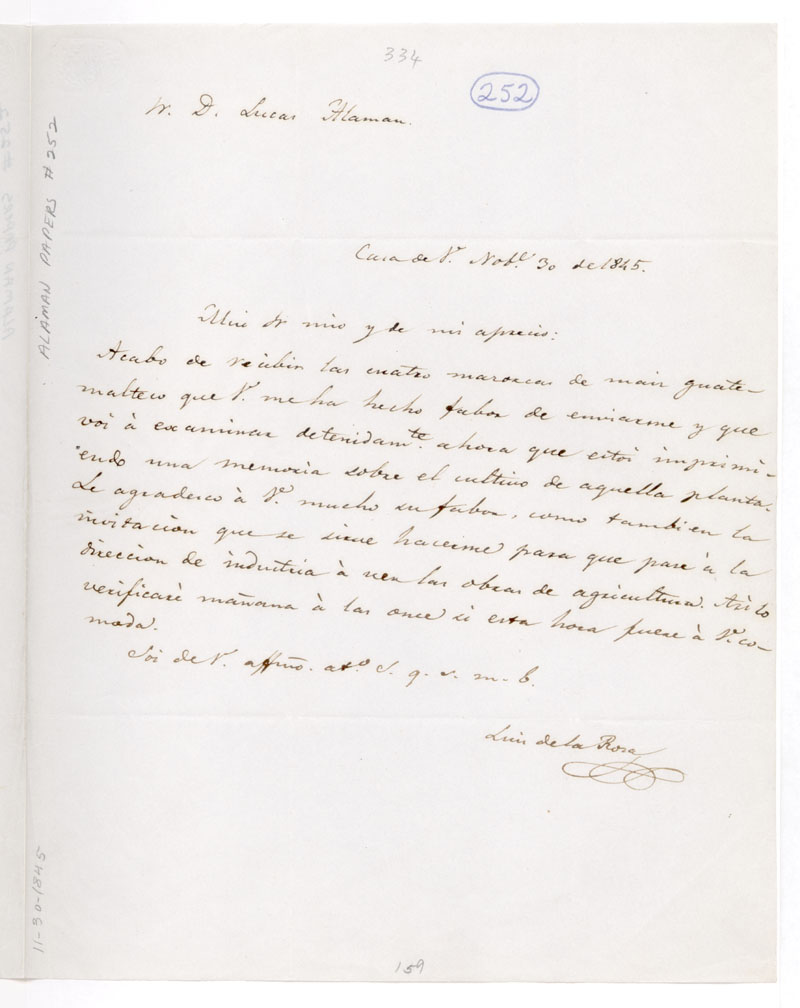 334
252
Sr. D. Lucas Alaman.
ALAMAN PAPERS # 252
Casa de V. Nobe. 30 de 1845.
Mui Sr mio y de mi aprecio:
Acabo de recibir las cuatro marorcas de mair guate-
malteco que V. me ha hecho fabor de enviarme y que
voi à examinar detenidamte. ahora que estoi imprimi-
endo una memoria sobre el cultivo de aquella planta.
Le agradesco à V. mucho su fabor, como tambien la
invitacion que se sirve hacerme para que pase à la
direccion de industria à ver las obras de agricultura. Asi lo
verificarè mañana à las once si esta hora fuere à V. co-
moda.
Soi de V. affmo. ato. S. q. s. m. b.
Luis de la Rosa
11-30-1845
159